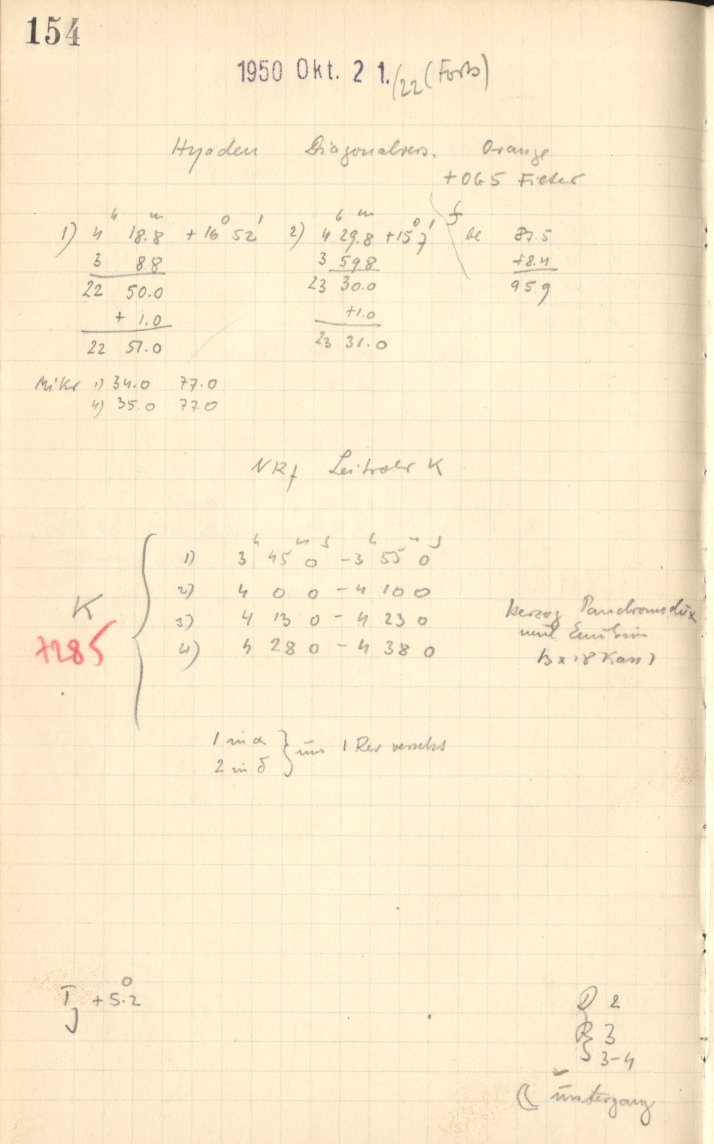 154
1950 Okt. 21./22 (Forts)
Hyaden Diagonalvers. Orange
+ OG5 Filter
1) 4h 18.8m +16° 52' 2) 4h 29.8m +15° 7' 87.5
3 8.8 3 59.8 +8.4
22 50.0 23 30.0 95.9
+ 1.0 +1.0
22 51.0 23 31.0
Mikr 1) 34.0 77.0
4) 35.0 77.0
Leitrohr K
1) 3h 45m 0s - 3h 55m 0s
2) 4 0 0 - 4 10 0
K 3) 4 13 0 - 4 23 0 Herzog Panchromodux
+285 4) 4 28 0 - 4 38 0
1 in α } um 1 Rev versetzt
2 in δ
T +5.2° D 2
R 3
S 3-4
☾ untergang